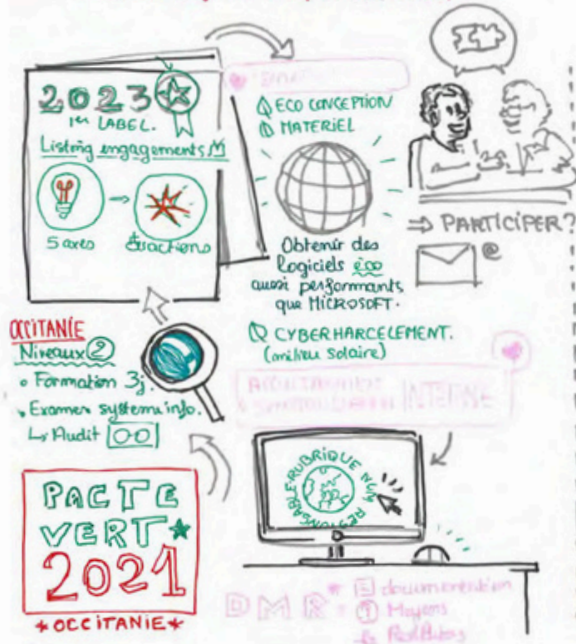 2023
1er LABEL.
Listing engagements
5 axes
actions
ECO CONCEPTION
MATERIEL
Obtenir des
logiciels éco
aussi performants
que MICROSOFT.
CYBERHARCELEMENT.
(milieu solaire)
⇒ PARTICIPER?
@
OCCITANIE
Niveaux 2
• Formation 3j.
• Examen system info.
↳ Audit
INTERNE
RUBRIQUE NUM RESPONSABLE
PACTE
VERT
2021
*OCCITANIE*
DMR = documentation
Moyens